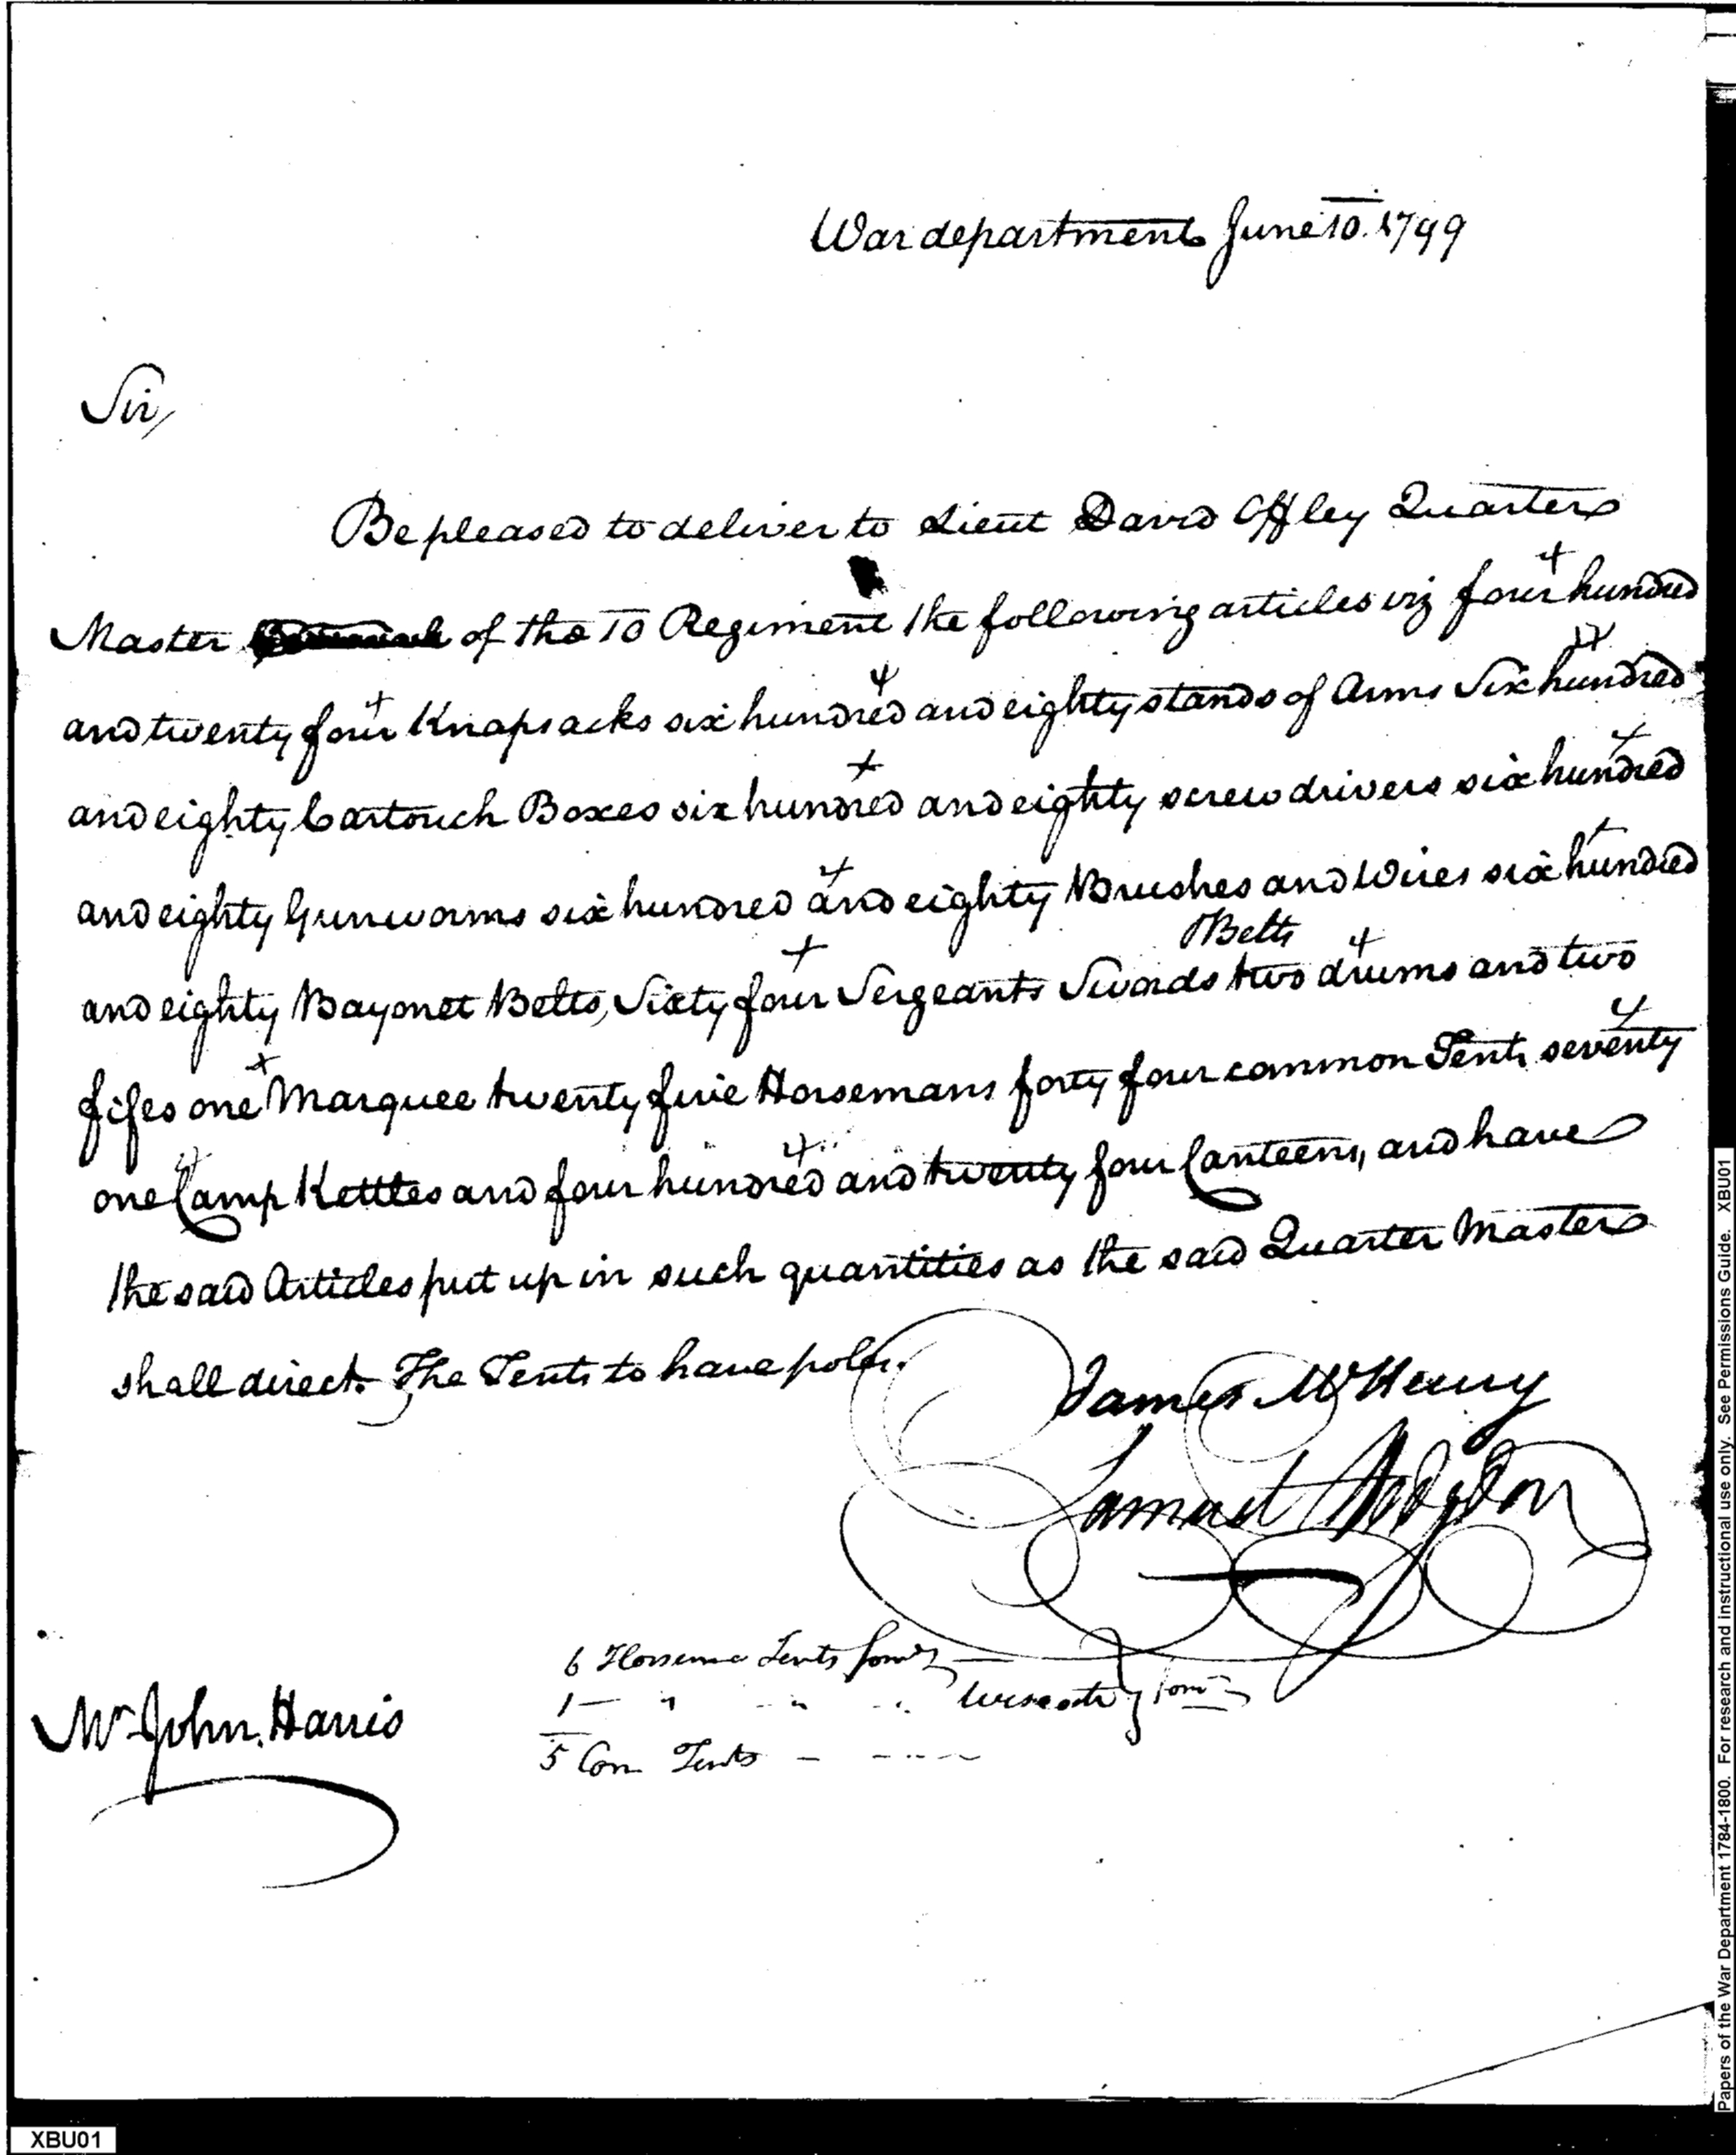 War department June 10. 1799
Sir,
Be pleased to deliver to Lieut David Offley Quarter
Master of the 10 Regiment the following articles viz four hundred
and twenty four Knapsacks six hundred and eighty stands of Arms Six hundred
and eighty Cartouch Boxes six hundred and eighty screw drivers six hundred
and eighty Gunworms six hundred and eighty Brushes and Wires six hundred
Belts
and eighty Bayonet Belts, Sixty four Sergeants Swords two drums and two
fifes one Marquee twenty five Horsemans forty four common Tents seventy
one Camp Kettles and four hundred and twenty four Canteens, and have
the said Articles put up in such quantities as the said Quarter Master
shall direct. The Tents to have poles.
James McHenry
Samuel Hodgdon
6 Horseman Tents
1 " " "
5 Com Tents
Mr John Harris
XBU01
Papers of the War Department 1784-1800. For research and instructional use only. See Permissions Guide. XBU01